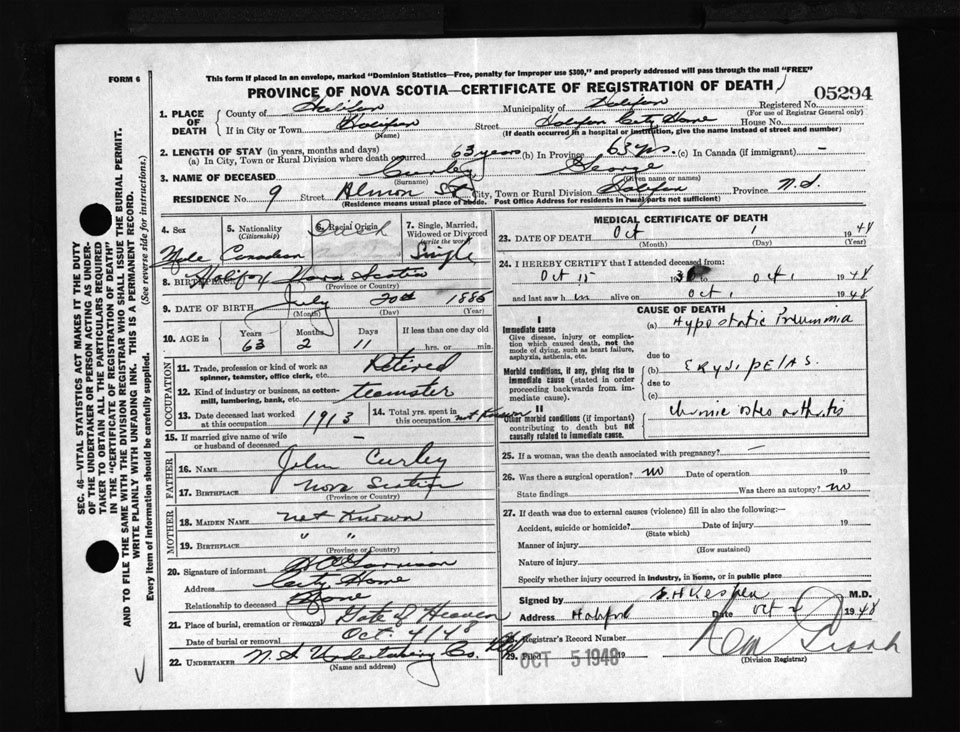 FORM 6
This form if placed in an envelope, marked "Dominion Statistics—Free, penalty for improper use $300," and properly addressed will pass through the mail "FREE"
PROVINCE OF NOVA SCOTIA—CERTIFICATE OF REGISTRATION OF DEATH
05294
1. PLACE OF DEATH
County of Halifax Municipality of Halifax Registered No.
(For use of Registrar General only)
If in City or Town Halifax Street Halifax City Home House No.
(Name) (If death occurred in a hospital or institution, give the name instead of street and number)
2. LENGTH OF STAY (in years, months and days)
(a) In City, Town or Rural Division where death occurred 63 years (b) In Province 63 yrs. (c) In Canada (if immigrant) —
3. NAME OF DECEASED Curley George
(Surname) (Given name or names)
RESIDENCE No. 9 Street Almon St City, Town or Rural Division Halifax Province N.S.
(Residence means usual place of abode. Post Office Address for residents in rural parts not sufficient)
4. Sex Male
5. Nationality (Citizenship) Canadian
6. Racial Origin Irish
7. Single, Married, Widowed or Divorced (write the word) Single
8. BIRTHPLACE Halifax Nova Scotia
(Province or Country)
9. DATE OF BIRTH July 20th 1885
(Month) (Day) (Year)
10. AGE in Years 63 Months 2 Days 11 If less than one day old hrs. or min.
OCCUPATION
11. Trade, profession or kind of work as spinner, teamster, office clerk, etc. Retired
12. Kind of industry or business, as cotton-mill, lumbering, bank, etc. teamster
13. Date deceased last worked at this occupation 1913
14. Total yrs. spent in this occupation not Known
15. If married give name of wife or husband of deceased —
FATHER
16. NAME John Curley
17. BIRTHPLACE Nova Scotia
(Province or Country)
MOTHER
18. MAIDEN NAME not Known
19. BIRTHPLACE " "
(Province or Country)
20. Signature of informant
Address City Home
Relationship to deceased None
21. Place of burial, cremation or removal Gate of Heaven
Date of burial or removal Oct. 4/48
22. UNDERTAKER N.S. Undertaking Co.
(Name and address)
MEDICAL CERTIFICATE OF DEATH
23. DATE OF DEATH Oct 1 1948
(Month) (Day) (Year)
24. I HEREBY CERTIFY that I attended deceased from:
Oct 15 19 to Oct 1 1948
and last saw him alive on Oct 1 1948
CAUSE OF DEATH
I
Immediate cause
Give disease, injury or complication which caused death, not the mode of dying, such as heart failure, asphyxia, asthenia, etc.
(a) Hypostatic Pneumonia
due to
Morbid conditions, if any, giving rise to immediate cause (stated in order proceeding backwards from immediate cause).
(b) ERYSIPELAS.
due to
(c)
II
Other morbid conditions (if important) contributing to death but not causally related to immediate cause.
chronic osteo arthritis
25. If a woman, was the death associated with pregnancy? —
26. Was there a surgical operation? no Date of operation 19
State findings Was there an autopsy? no
27. If death was due to external causes (violence) fill in also the following:—
Accident, suicide or homicide? Date of injury 19
(State which)
Manner of injury
(How sustained)
Nature of injury
Specify whether injury occurred in industry, in home, or in public place
Signed by M.D.
Address Halifax Date Oct 1948
28. Registrar's Record Number
29. Filed OCT 5 1948 19
(Division Registrar)
SEC. 46—VITAL STATISTICS ACT MAKES IT THE DUTY
OF THE UNDERTAKER OR PERSON ACTING AS UNDER-
TAKER TO OBTAIN ALL THE PARTICULARS REQUIRED
IN THE "CERTIFICATE OF REGISTRATION OF DEATH"
AND TO FILE THE SAME WITH THE DIVISION REGISTRAR WHO SHALL ISSUE THE BURIAL PERMIT.
WRITE PLAINLY WITH UNFADING INK. THIS IS A PERMANENT RECORD.
Every item of information should be carefully supplied. (See reverse side for instructions.)